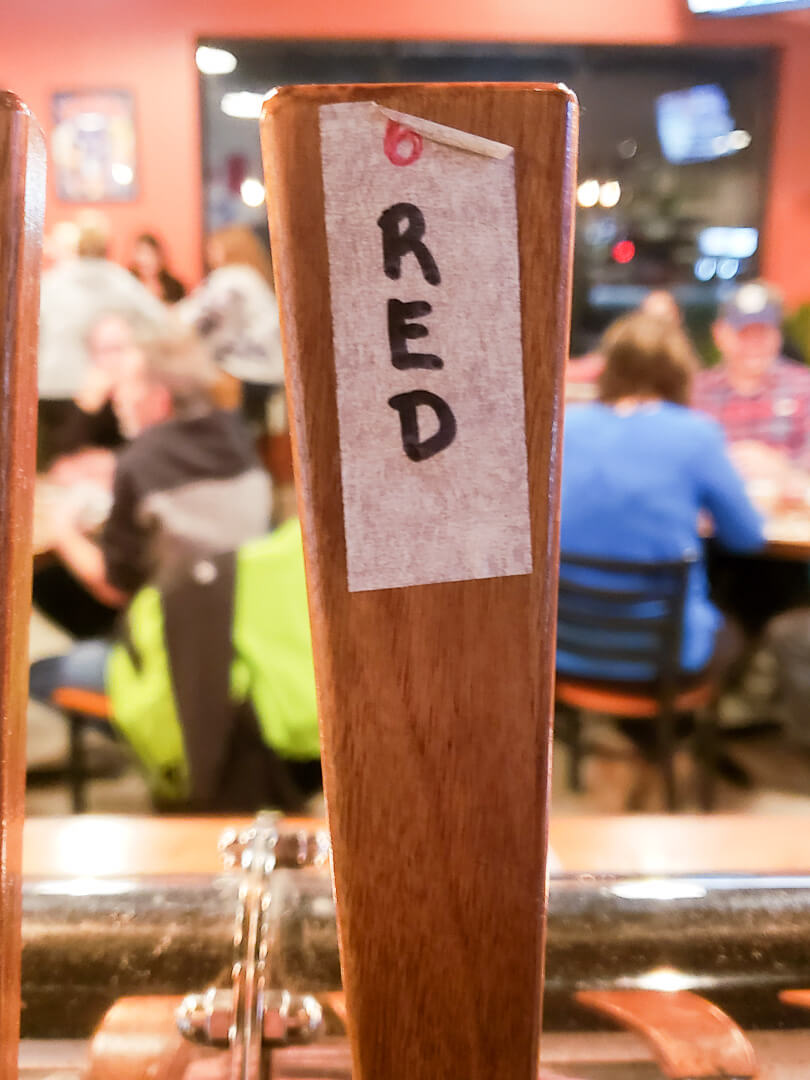 6
R
E
D